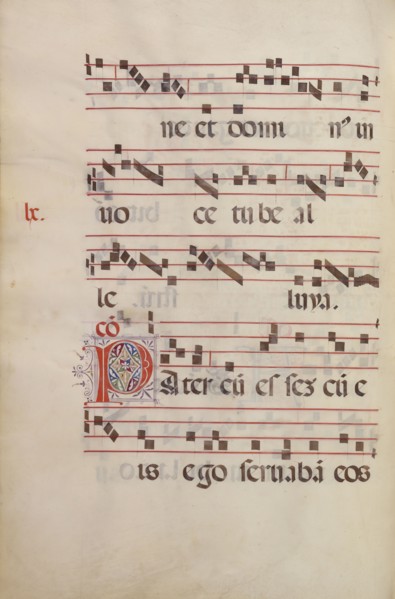 ne et domi n⁹ in
lx. uo ce tube al
le luya.
cō
Pater cū es sez cū e
is ego seruabā eos